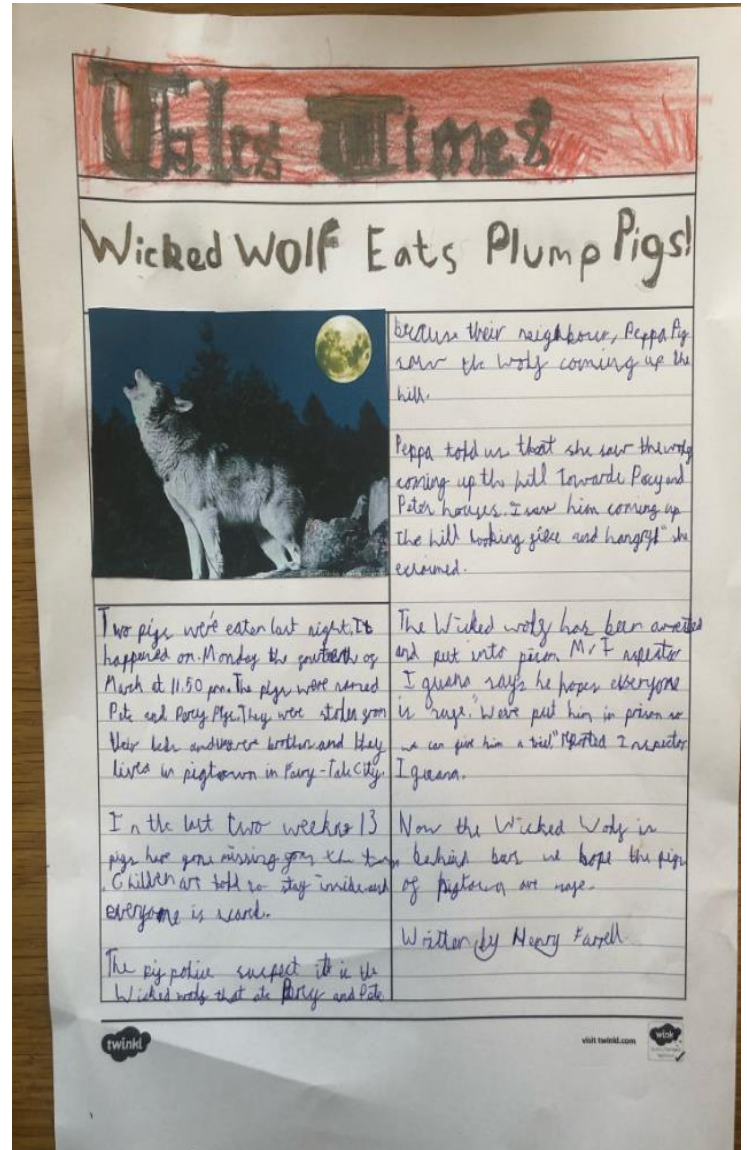 Tales Times
Wicked Wolf Eats Plump Pigs!
Two pigs were eaten last night. It
happened on Monday the fourteenth of
March at 11.50 pm. The pigs were named
Pete and Porcy Pigs. They were stolen from
their beds and were brothers and they
lives in pigtown in Fairy-Tale City.
In the last two weeks 13
pigs have gone missing from the town
. Children are told to stay inside and
everyone is scared.
The pig police suspect it is the
Wicked wolf that ate Porcy and Pete
because their neighbour, Peppa Pig
saw the wolf coming up the
hill.
Peppa told us that she saw the wolf
coming up the hill towards Porcy and
Petes houses. I saw him coming up
the hill looking and hangry!" she
exclaimed.
The Wicked wolf has been arrested
and put into prison Mr Inspector
Iguana says he hopes everyone
is safe. "We've put him in prison so
we can give him a trial" reported Inspector
Iguana.
Now the Wicked Wolf is
behind bars we hope the pigs
of pigtown are safe.
Written by Henry Farrell
twinkl
visit twinkl.com